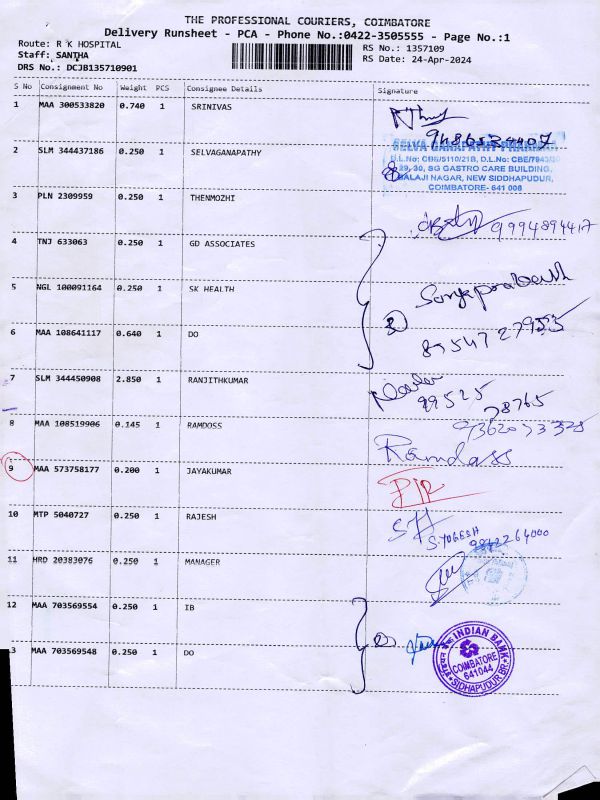 THE PROFESSIONAL COURIERS, COIMBATORE
Delivery Runsheet - PCA - Phone No.:0422-3505555 - Page No.:1
Route: R K HOSPITAL
RS No.: 1357109
Staff: SANTHA
RS Date: 24-Apr-2024
DRS No.: DCJB135710901
S No Consignment No Weight PCS Consignee Details Signature
1 MAA 300533820 0.740 1 SRINIVAS
2 SLM 344437186 0.250 1 SELVAGANAPATHY
SELVA GANAPATHY
D.L.No: CBE/5110/21B, D.L.No: CBE/7943/20
29, 30, SG GASTRO CARE BUILDING,
BALAJI NAGAR, NEW SIDDHAPUDUR,
COIMBATORE- 641 008
3 PLN 2309959 0.250 1 THENMOZHI
9994894417
4 TNJ 633063 0.250 1 GD ASSOCIATES
5 NGL 100091164 0.250 1 SK HEALTH
6 MAA 108641117 0.640 1 DO
7 SLM 344450908 2.850 1 RANJITHKUMAR
99525
78765
8 MAA 108519906 0.145 1 RAMDOSS
Ramdass
9 MAA 573758177 0.200 1 JAYAKUMAR
10 MTP 5040727 0.250 1 RAJESH
11 HRD 20383076 0.250 1 MANAGER
12 MAA 703569554 0.250 1 IB
3 MAA 703569548 0.250 1 DO
INDIAN BANK
COIMBATORE
641044
SIDHAPUDUR BR.